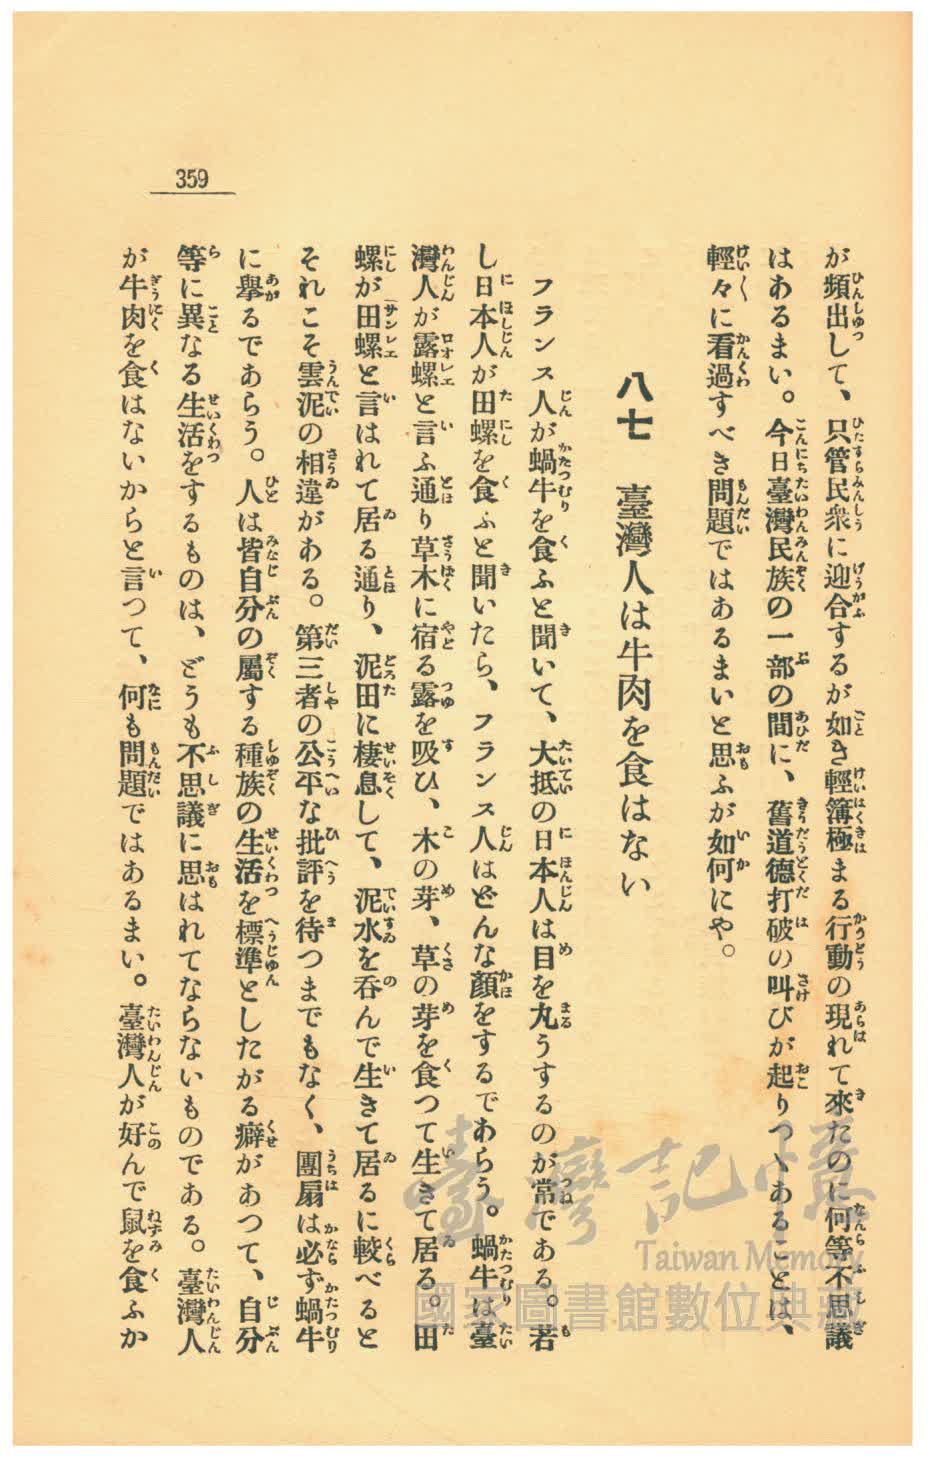 が頻出して、只管民衆に迎合するが如き輕簿極まる行動の現れて來たのに何等不思議
はあるまい。今日臺灣民族の一部の間に、舊道德打破の叫びが起りつゝあることは、
輕々に看過すべき問題ではあるまいと思ふが如何にや。
八七　臺灣人は牛肉を食はない
フランス人が蝸牛を食ふと聞いて、大抵の日本人は目を丸うするのが常である。若
し日本人が田螺を食ふと聞いたら、フランス人はどんな顏をするであらう。蝸牛は臺
灣人が露螺と言ふ通り草木に宿る露を吸ひ、木の芽、草の芽を食つて生きて居る。田
螺が田螺と言はれて居る通り、泥田に棲息して、泥水を呑んで生きて居るに較べると
それこそ雲泥の相違がある。第三者の公平な批評を待つまでもなく、團扇は必ず蝸牛
に擧るであらう。人は皆自分の屬する種族の生活を標準としたがる癖があつて、自分
等に異なる生活をするものは、どうも不思議に思はれてならないものである。臺灣人
が牛肉を食はないからと言つて、何も問題ではあるまい。臺灣人が好んで鼠を食ふか
359
臺灣記憶
Taiwan Memory
國家圖書館數位典藏